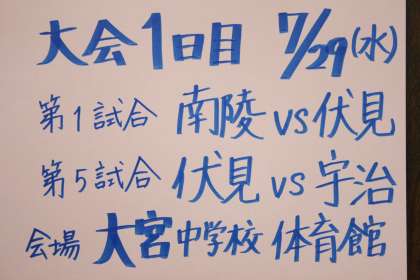 大会1日目 7/29(水)
第1試合 南陵 vs 伏見
第5試合 伏見 vs 宇治
会場 大宮中学校 体育館